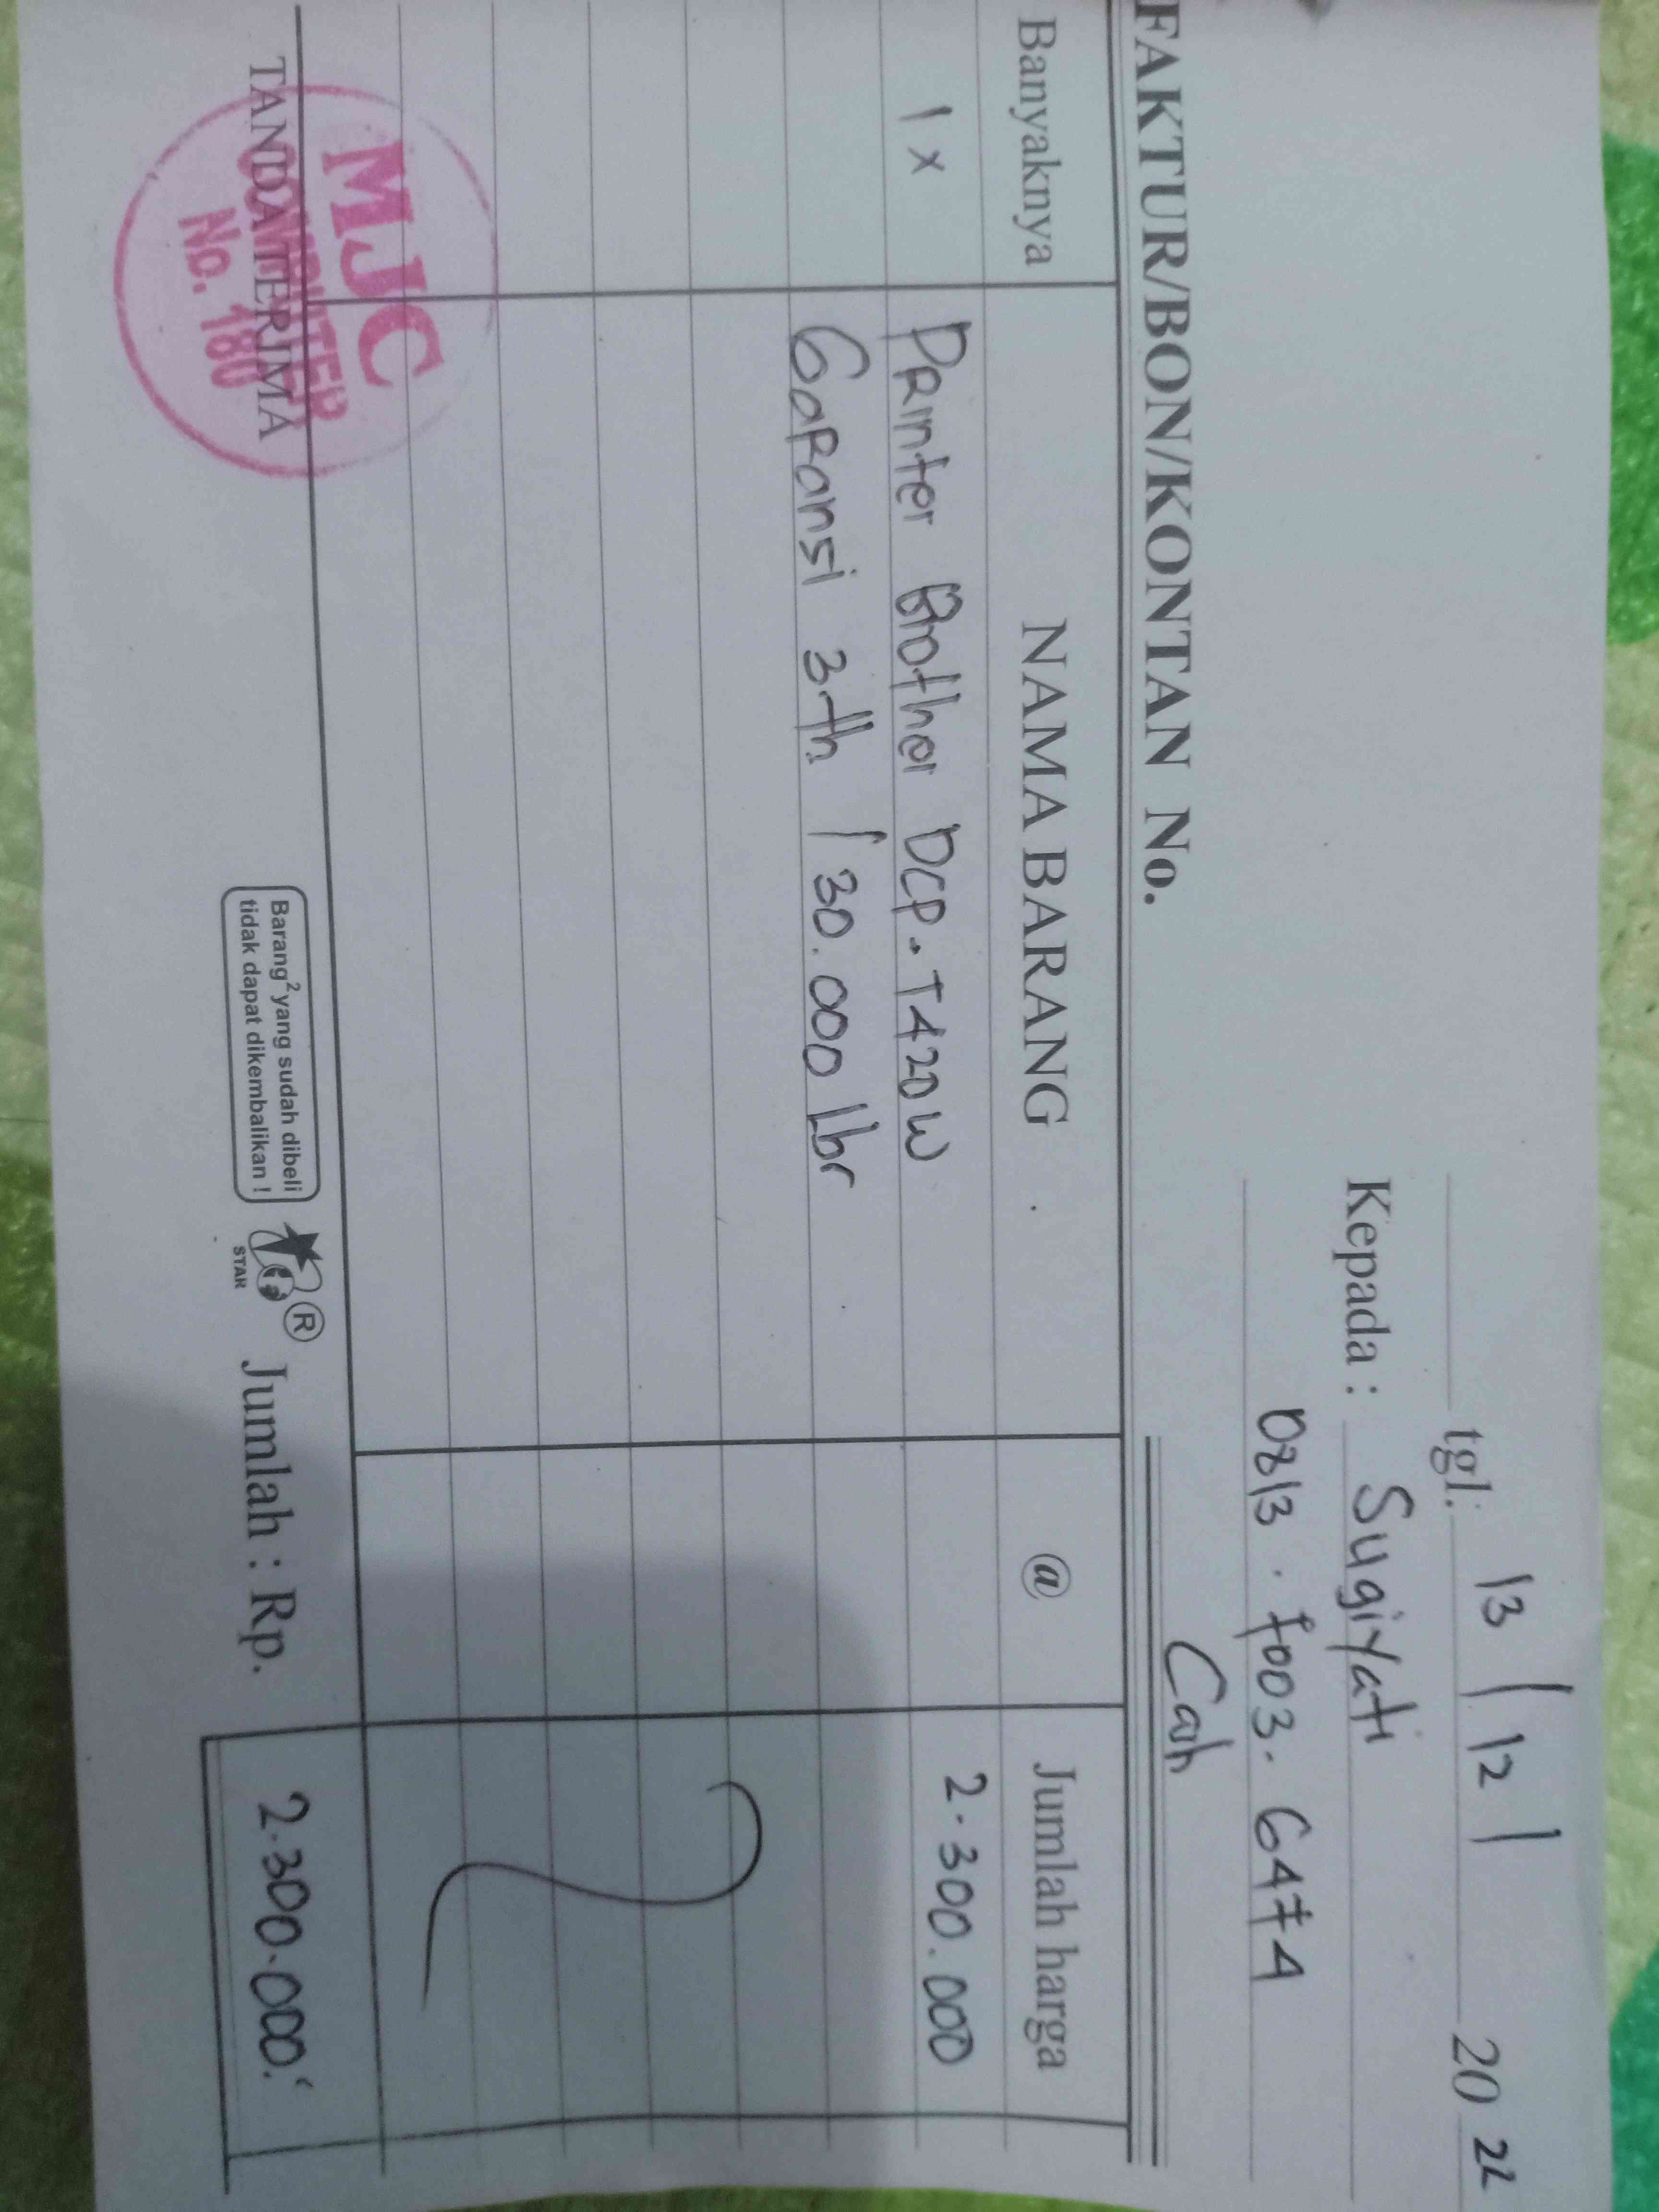 tgl. 13 / 12 / 2022
Kepada : Sugiyati
0813 . 7003 . 6474
Cash
FAKTUR/BON/KONTAN No.
Banyaknya NAMA BARANG @ Jumlah harga
1 x Printer Brother DCP.T420W 2.300.000
Garansi 3th / 30.000 lbr
TANDA TERIMA
MJC
COMPUTER
No. 180
Barang² yang sudah dibeli
tidak dapat dikembalikan !
STAR
®
Jumlah : Rp. 2.300.000.